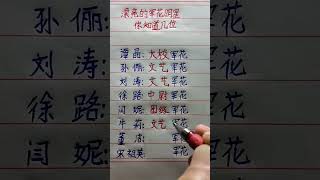 漂亮的军花明星
你知道几位
谭晶:大校军花
孙俪:文艺军花
刘涛:文艺军花
徐路:中尉军花
闫妮:团级军花
牛莉:文艺军花
董洁: 军花
宋祖英: 军花
孙俪:
刘涛:
徐路:
闫妮: